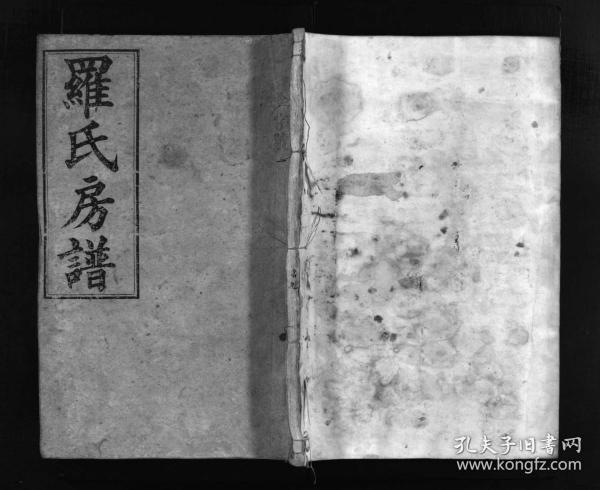 羅氏房譜
孔夫子旧书网
www.kongfz.com